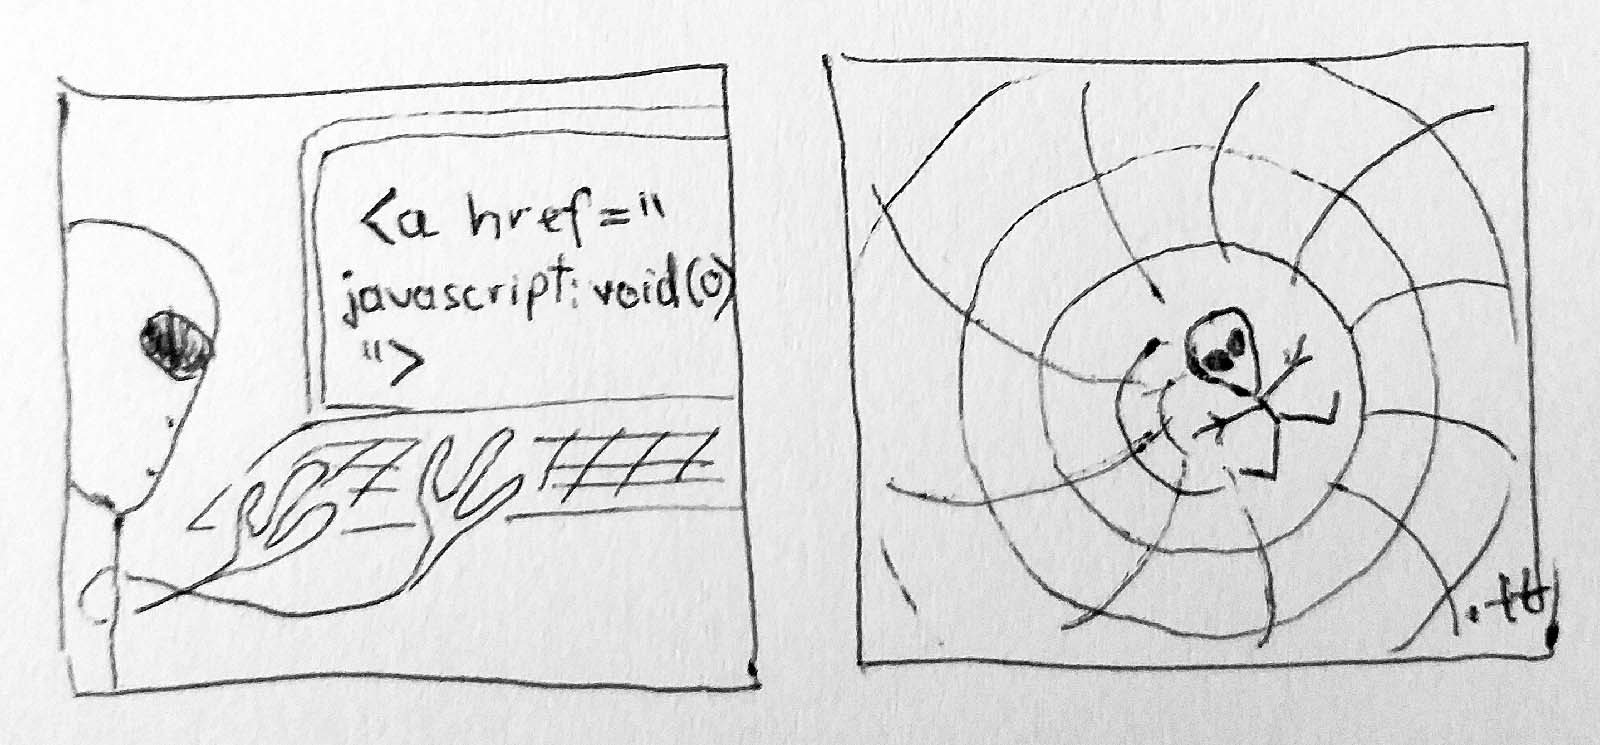 <a href="
javascript:void(0)
">
.tt